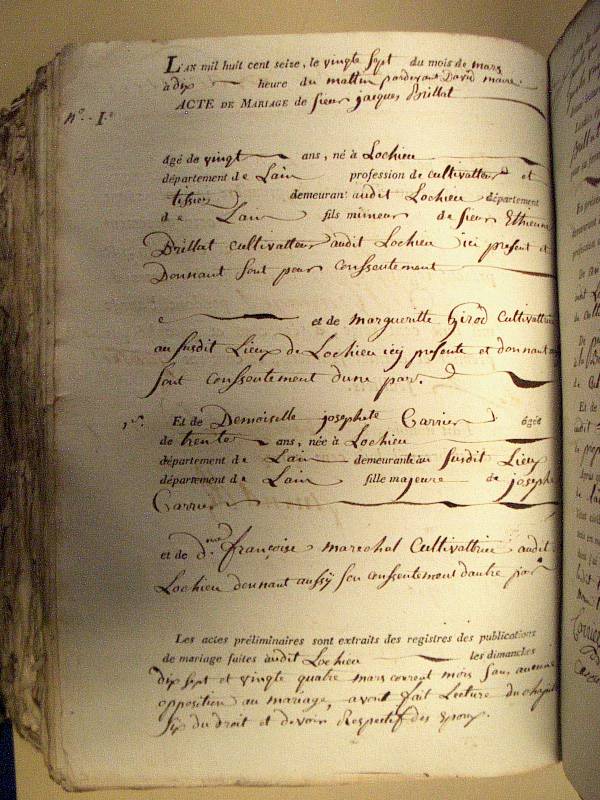 L'AN mil huit cent seize, le vingte sept du mois de mars
à dix heure du mattin pardevant David maire.
N.° 1.°
ACTE DE MARIAGE de sieur jacques Brillat
âgé de vingt ans, né à Lochieu
département de Lain profession de cultivatteur et
tissier demeurant audit Lochieu département
de Lain fils mineur de sieur Ethienne
Brillat cultivatteur audit Lochieu ici present et
Donnant sont pour conssentement
e et de margueritte Girod Cultivattrice
au susdit Lieux de Lochieu icy presente et donnant
sont conssentement dune par.
Et de Demoiselle josephete Carrier âgée
de trente ans, née à Lochieu
département de Lain demeurante au susdit Lieux
département de Lain fille majeure de josephe
Carrier
et de d.me françoise marechal Cultivattrice audit
Lochieu donnant aussÿ son conssentement dautre par
Les actes préliminaires sont extraits des registres des publications
de mariage faites audit Lochieu les dimanches
dix sept et vingte quatre mars corrent mois san aucune
opposition au mariage, avont fait Lecture du chapit
six du droit et devoir Respectif des Epoux.